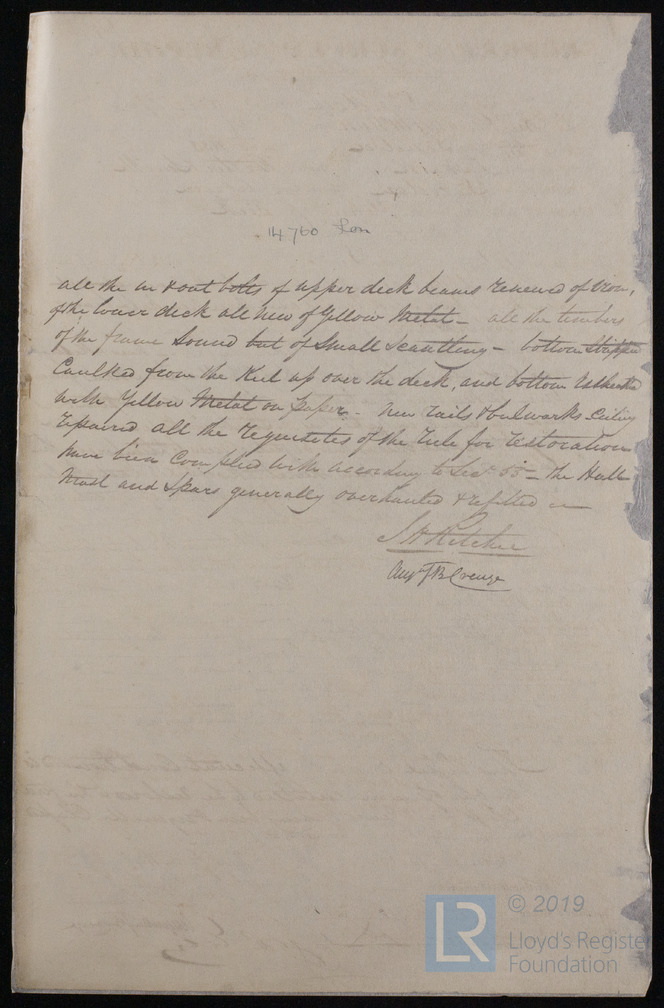 14760 Lon
all the in & out bolts of upper deck beams renewed of Iron,
of the lower deck all new of Yellow Metal - all the timbers
of the frame Sound but of Small Scantling - bottom Stripped
Caulked from the Keel up over the deck, and bottom
with Yellow Metal on paper - New rails & bulwarks Ceiling
repaired all the requisites of the rule for restoration
have been Complied with according to Sec 
 - the Hull
Mast and Spars generally overhauled & refitted
Augn F B Creuze
LR
© 2019
Lloyd's Register
Foundation